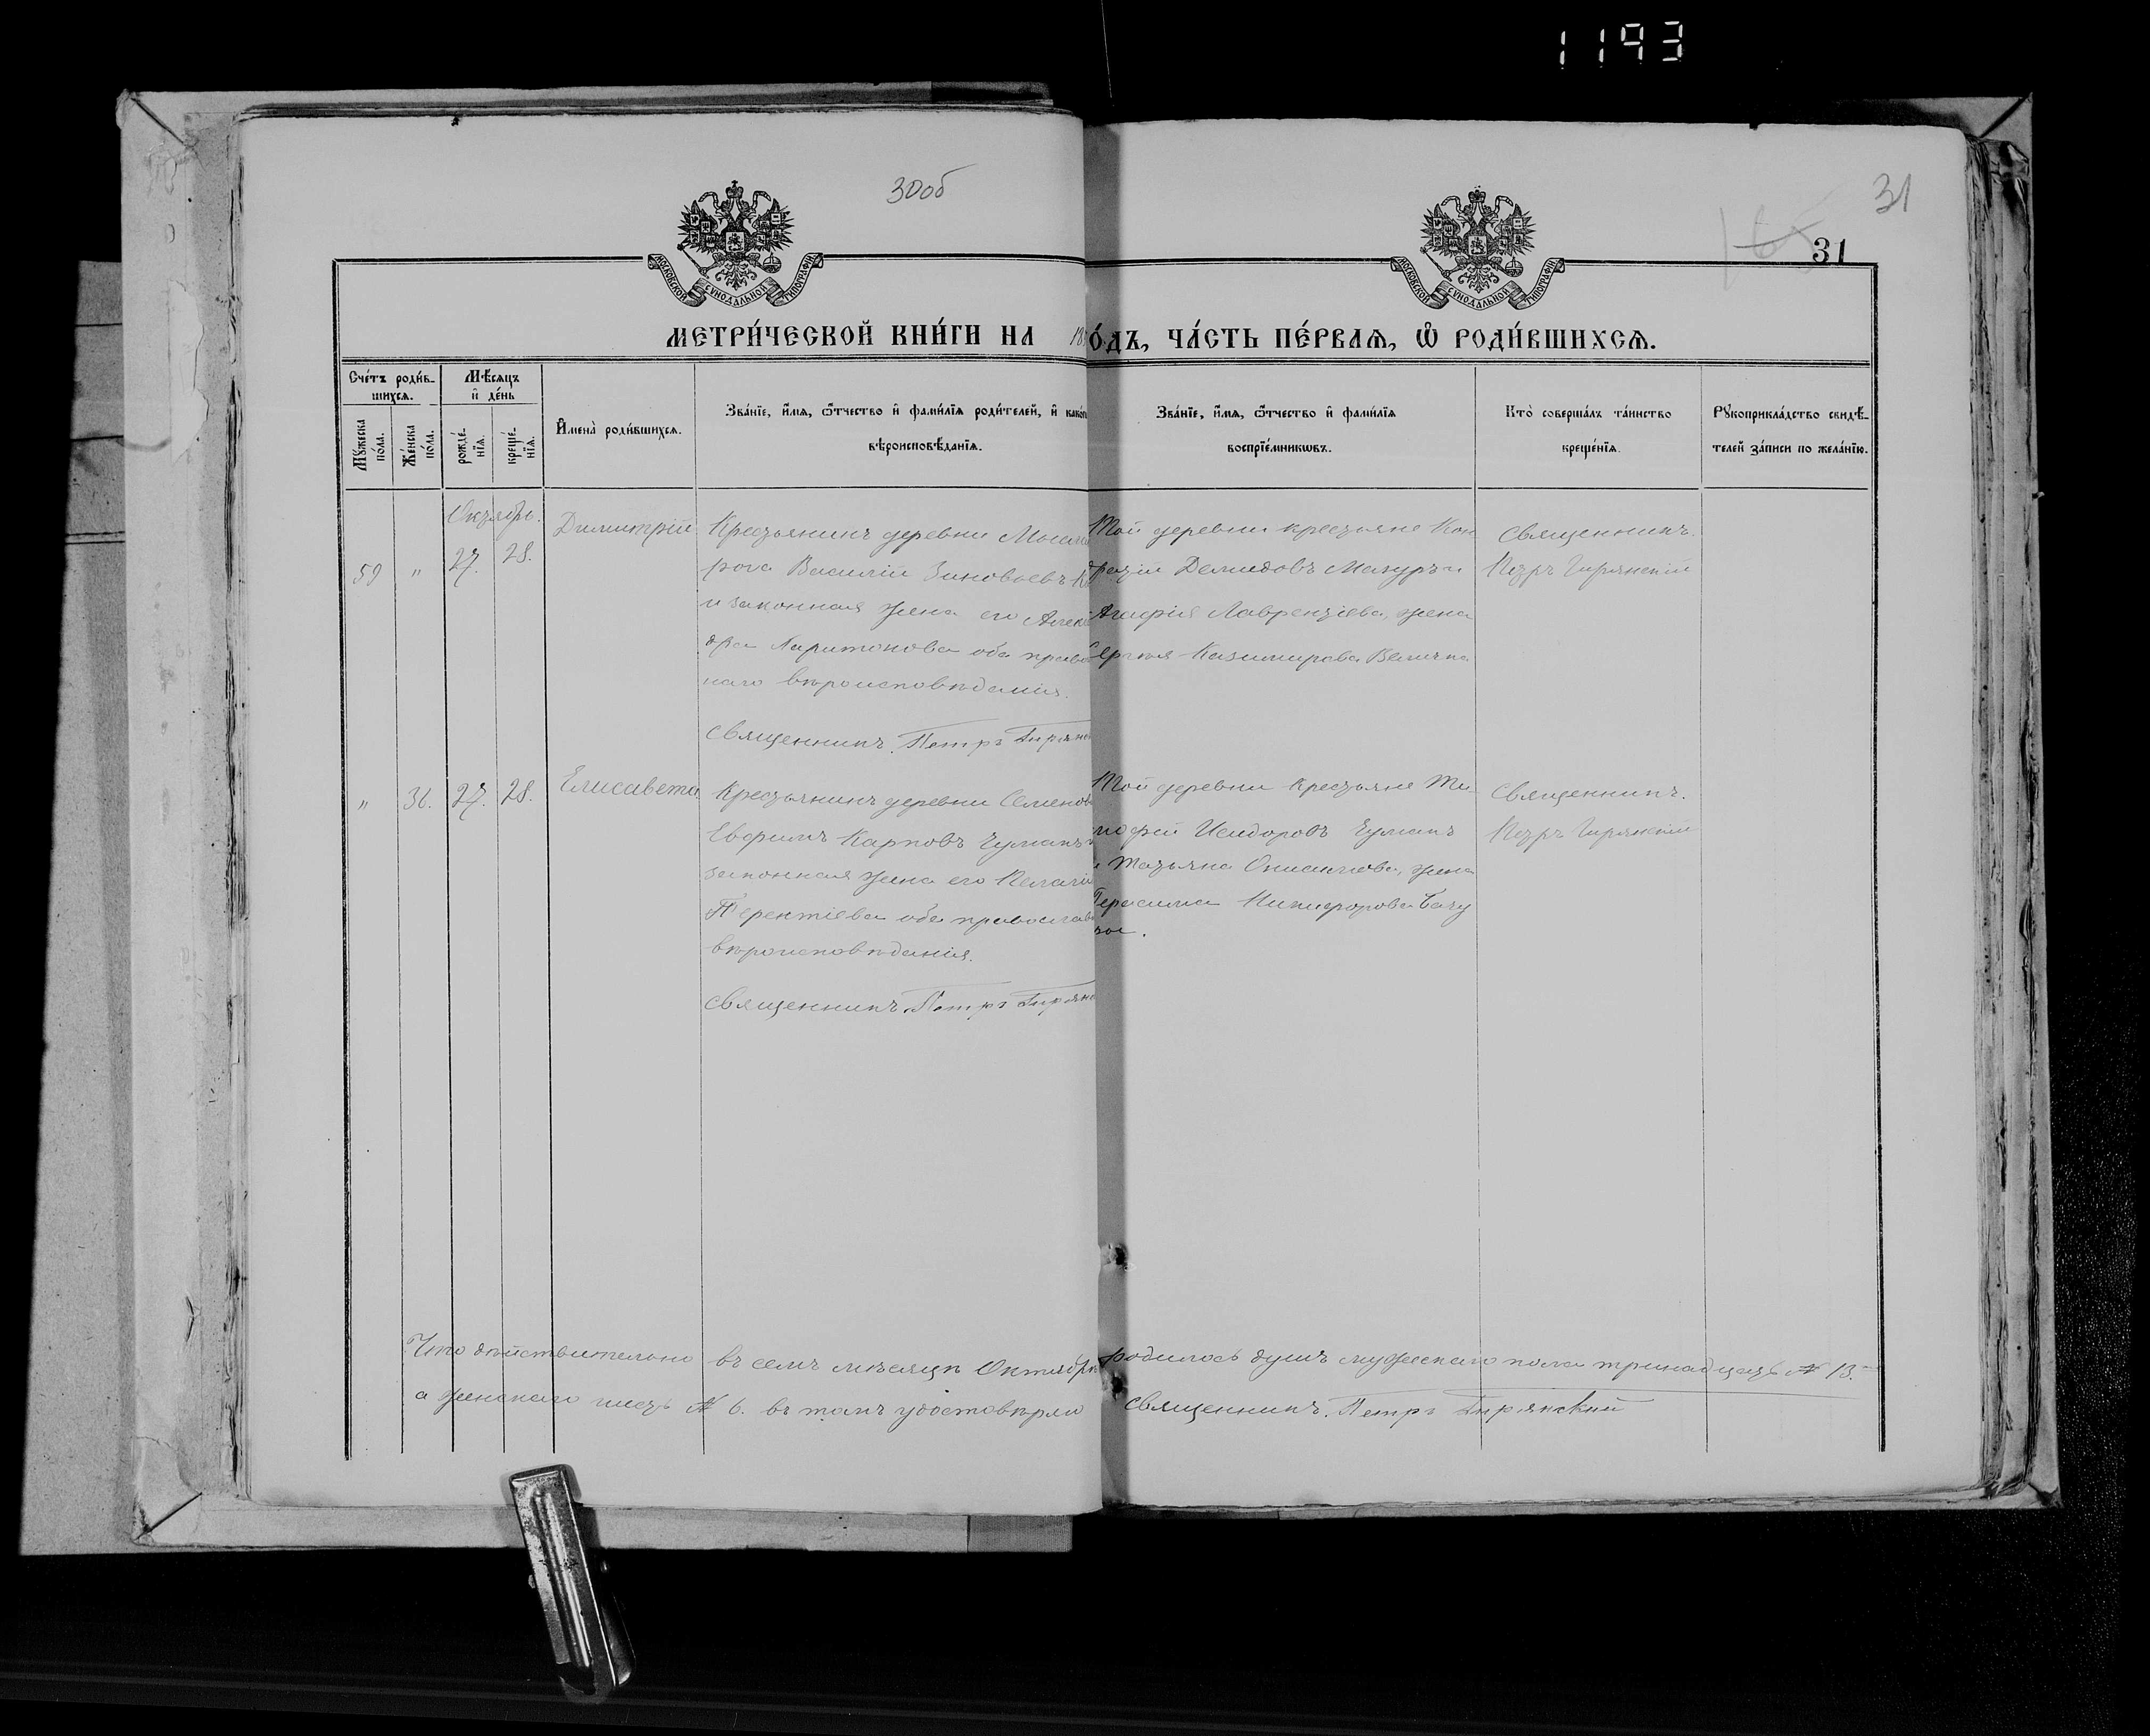 1193
30об
31
31
МОСКОВСКОЙ СѴНОДАЛЬНОЙ ТИПОГРАФІИ
МОСКОВСКОЙ СѴНОДАЛЬНОЙ ТИПОГРАФІИ
МЕТРИ́ЧЕСКОЙ КНИ́ГИ НА 18
О́ДЪ, ЧА́СТЬ ПЕ́РВАѦ, Ѿ РОДИ́ВШИХСѦ.
Сче́тъ роди́в-
шихсѧ.
Мѣ́сѧцъ
и҆ де́нь
Мꙋ́жеска
по́ла.
Же́нска
по́ла.
рожде́-
нїѧ.
креще́-
нїѧ.
И҆мена̀ роди́вшихсѧ.
Зва́нїе, и҆́мѧ, ѻ҆́тчество и҆ фами́лїѧ роди́телей, и҆ како́г
вѣроисповѣ́данїѧ.
Зва́нїе, и҆́мѧ, ѻ҆́тчество и҆ фами́лїѧ
воспрїе́мникѡвъ.
Кто̀ соверша́лъ та́инство
креще́нїѧ.
Рꙋкоприкла́дство свидѣ́-
телей за́писи по жела́нїю.
Октябрь.
59 " 27. 28. Димитрій
Крестьянинъ деревни
рога Василій Зиновьевъ
и законная жена его Алек
дра Харитонова оба право
наго вѣроисповѣданія.
Священникъ Петръ Гирян
Той деревни крестьяне Кон
дратій Демидовъ Мазуръ и
Агафія Лаврентіева, жена
Сергѣя Казимирова
Священникъ
Петръ Гирянскій
" 36. 27. 28. Елисавета
Крестьянинъ деревни Семенов
Евфимъ Карповъ Чумакъ
законная жена его Пелагі
Терентіева оба православ
вѣроисповѣданія.
Священникъ Петръ Гирян
Той деревни крестьяне Ти
мофей Исидоровъ Чумакъ
и Татьяна Онисимова, жена
Герасима Никифорова
Священникъ.
Петръ Гирянскій
Что дѣйствительно въ семъ мѣсяцѣ Октябрѣ родилось душъ мужескаго пола тринадцать № 13.
а женскаго шесть № 6. въ томъ удостовѣряю Священникъ Петръ Гирянскій